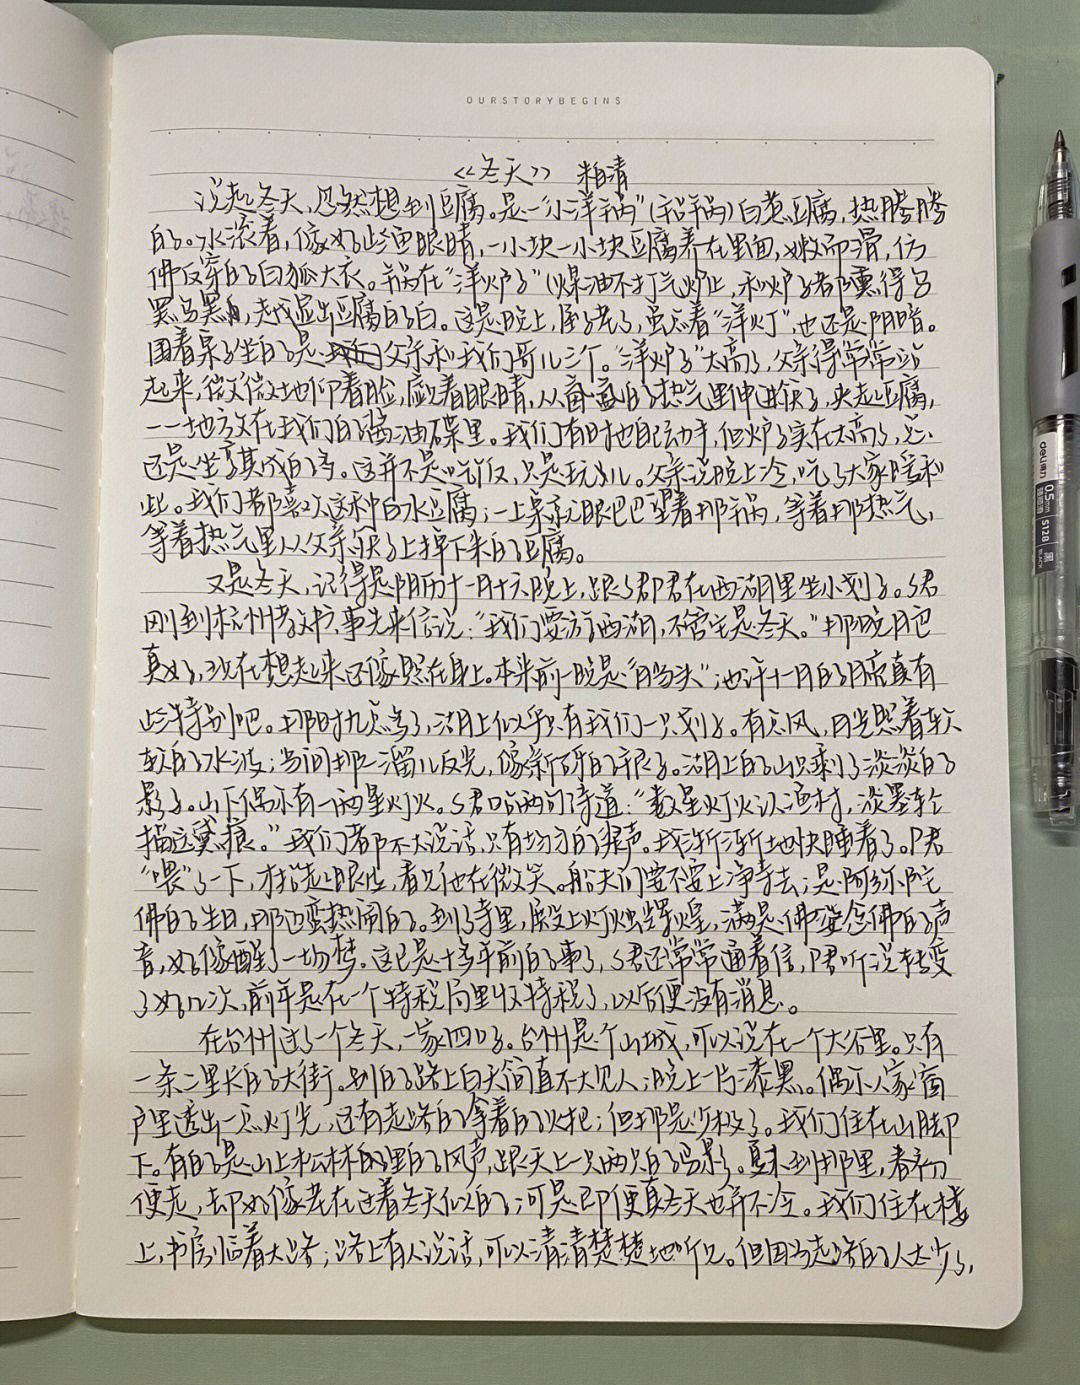 OURSTORYBEGINS
《冬天》 朱自清
说起冬天，忽然想到豆腐。是一“小洋锅”（铝锅）白煮豆腐，热腾腾
的。水滚着，像好些鱼眼睛，一小块一小块豆腐养在里面，嫩而滑，仿
佛反穿的白狐大衣。锅在“洋炉子”（煤油不打气炉）上，和炉子都熏得乌
黑乌黑，越显出豆腐的白。这是晚上，屋子老了，虽点着“洋灯”，也还是阴暗。
围着桌子坐的是父亲和我们哥儿三个。“洋炉子”太高了，父亲得常常站
起来，微微地仰着脸，觑着眼睛，从氤氲的热气里伸进筷子，夹起豆腐，
一一地放在我们的酱油碟里。我们有时也自己动手，但炉子实在太高了，总
还是坐享其成的多。这并不是吃饭，只是玩儿。父亲说晚上冷，吃了大家暖和
些。我们都喜欢这种白水豆腐；一上桌就眼巴巴望着那锅，等着那热气，
等着热气里从父亲筷子上掉下来的豆腐。
又是冬天，记得是阴历十一月十六晚上，跟S君P君在西湖里坐小划子。S君
刚到杭州教书，事先来信说：“我们要游西湖，不管它是冬天。”那晚月色
真好，现在想起来还像照在身上。本来前一晚是“月当头”；也许十一月的月亮真有
些特别吧。那时九点多了，湖上似乎只有我们一只划子。有点风，月光照着软
软的水波；当间那一溜儿反光，像新砑的银子。湖上的山只剩了淡淡的
影子。山下偶尔有一两星灯火。S君口占两句诗道：“数星灯火认渔村，淡墨轻
描远黛痕。”我们都不大说话，只有均匀的桨声。我渐渐地快睡着了。P君
“喂”了一下，才抬起眼皮，看见他在微笑。船夫问要不要上净寺去；是阿弥陀
佛的生日，那边蛮热闹的。到了寺里，殿上灯烛辉煌，满是佛婆念佛的声
音，好像醒了一场梦。这已是十多年前的事了，S君还常常通着信，P君听说转变
了好几次，前年是在一个特税局里收特税了，以后便没有消息。
在台州过了一个冬天，一家四口子。台州是个山城，可以说在一个大谷里。只有
一条二里长的大街。别的路上白天简直不大见人；晚上一片漆黑。偶尔人家窗
户里透出一点灯光，还有走路的拿着的火把；但那是少极了。我们住在山脚
下。有的是山上松林里的风声，跟天上一只两只的鸟影。夏末到那里，春初
便走，却好像老在过着冬天似的；可是即便真冬天也并不冷。我们住在楼
上，书房临着大路；路上有人说话，可以清清楚楚地听见。但因为走路的人太少了，
deli得力
0.5mm
S128
黑
BLACK